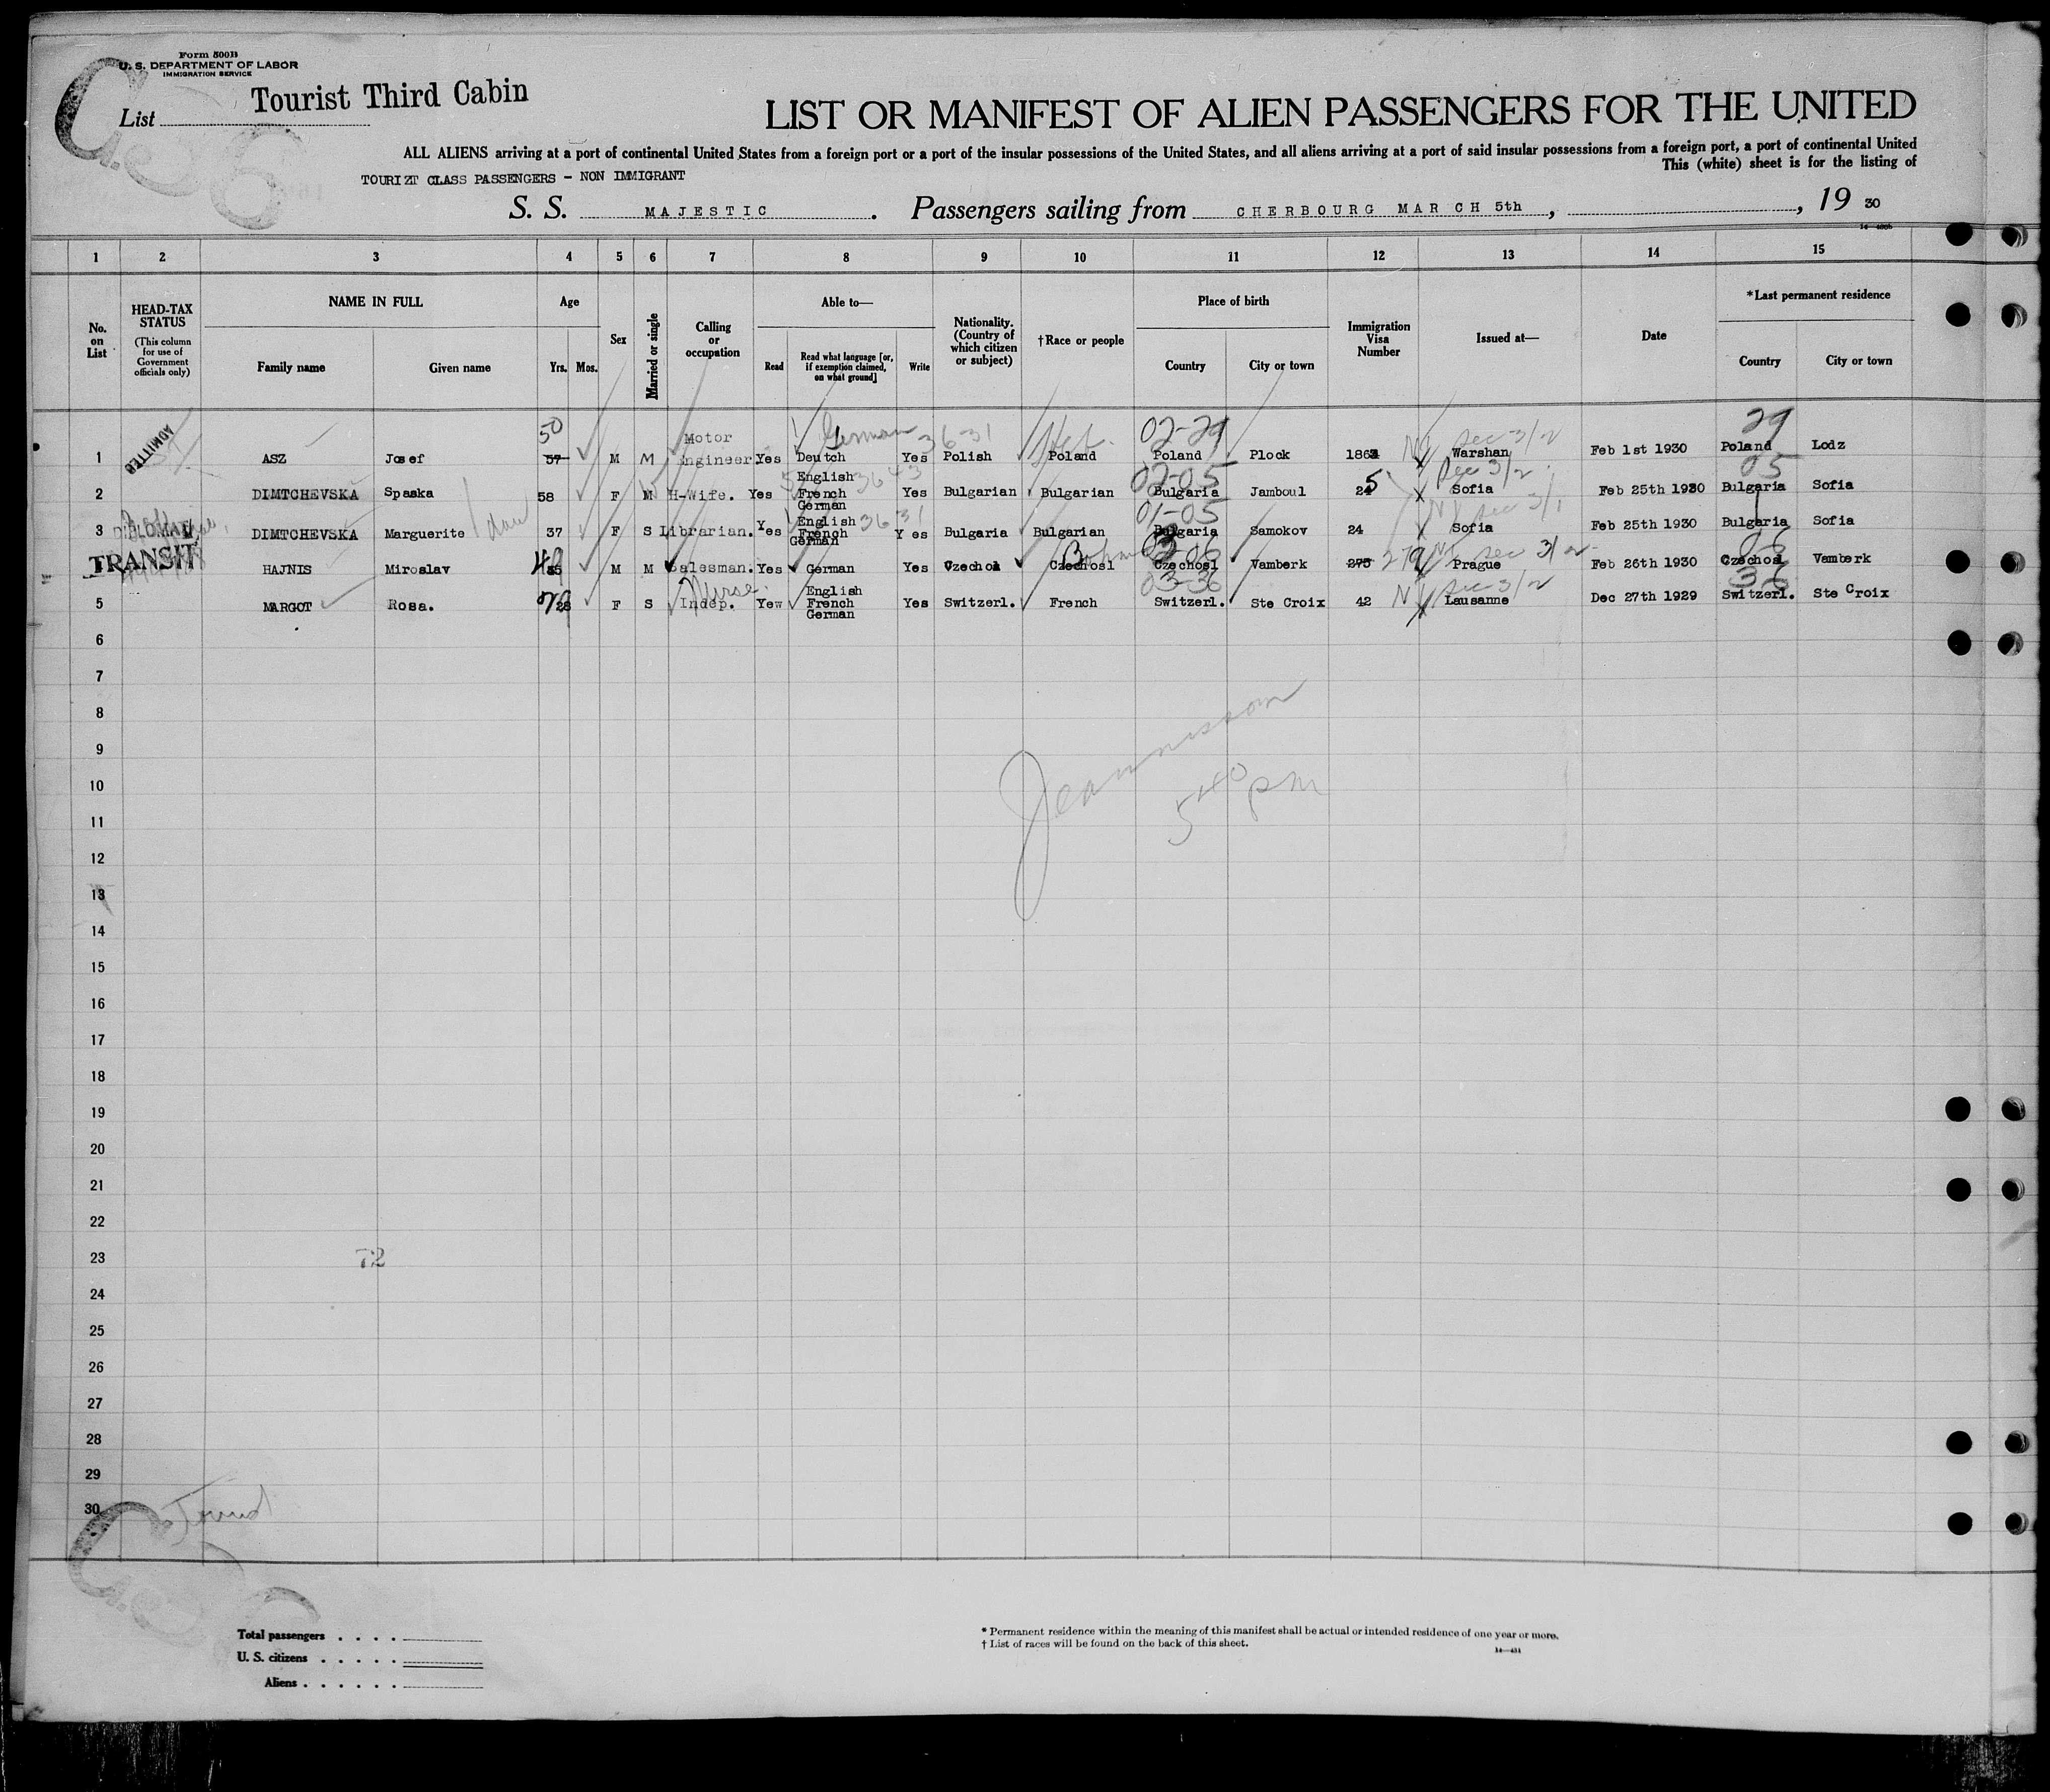 Form 500B
U. S. DEPARTMENT OF LABOR
IMMIGRATION SERVICE
List Tourist Third Cabin
LIST OR MANIFEST OF ALIEN PASSENGERS FOR THE UNITED
ALL ALIENS arriving at a port of continental United States from a foreign port or a port of the insular possessions of the United States, and all aliens arriving at a port of said insular possessions from a foreign port, a port of continental United
This (white) sheet is for the listing of
TOURIZT CLASS PASSENGERS - NON IMMIGRANT
S. S. MAJESTIC. Passengers sailing from CHERBOURG MARCH 5th, , 19 30
1 2 3 4 5 6 7 8 9 10 11 12 13 14 15
No. on List
HEAD-TAX STATUS
(This column for use of Government officials only)
NAME IN FULL
Family name Given name
Age
Yrs. Mos.
Sex
Married or single
Calling or occupation
Able to—
Read
Read what language [or, if exemption claimed, on what ground]
Write
Nationality. (Country of which citizen or subject)
†Race or people
Place of birth
Country City or town
Immigration Visa Number
Issued at—
Date
*Last permanent residence
Country City or town
50 German 36-31 Heb. 02-29 Sec 3/2 29
1 ADMITTED ASZ Josef 57 M M Motor Engineer Yes Deutch Yes Polish Poland Poland Plock 1862 Warshan Feb 1st 1930 Poland Lodz
02-05 5 Sec 3/2 05
2 DIMTCHEVSKA Spaska 58 F M H-Wife. Yes English French German Yes Bulgarian Bulgarian Bulgaria Jamboul 24 Sofia Feb 25th 1930 Bulgaria Sofia
36 31 01-05 Sec 3/1
3 DIPLOMAT DIMTCHEVSKA Marguerite dau 37 F S Librarian. Yes English French German Yes Bulgaria Bulgarian Bulgaria Samokov 24 Sofia Feb 25th 1930 Bulgaria Sofia
49 Sec 3/2
TRANSIT HAJNIS Miroslav M M Salesman. Yes German Yes Czechol Czechosl Czechosl Vamberk 275 Prague Feb 26th 1930 Czechosl Vamberk
Nurse. 03-36 Sec 3/2 36
5 MARGOT Rosa. 28 F S Indep. Yew English French German Yes Switzerl. French Switzerl. Ste Croix 42 Lausanne Dec 27th 1929 Switzerl. Ste Croix
6
7
8
9
10
5 40 pm
11
12
13
14
15
16
17
18
19
20
21
22
23
72
24
25
26
27
28
29
30
Total passengers . . . .
U. S. citizens . . . . .
Aliens . . . . . .
* Permanent residence within the meaning of this manifest shall be actual or intended residence of one year or more.
† List of races will be found on the back of this sheet.
14—431